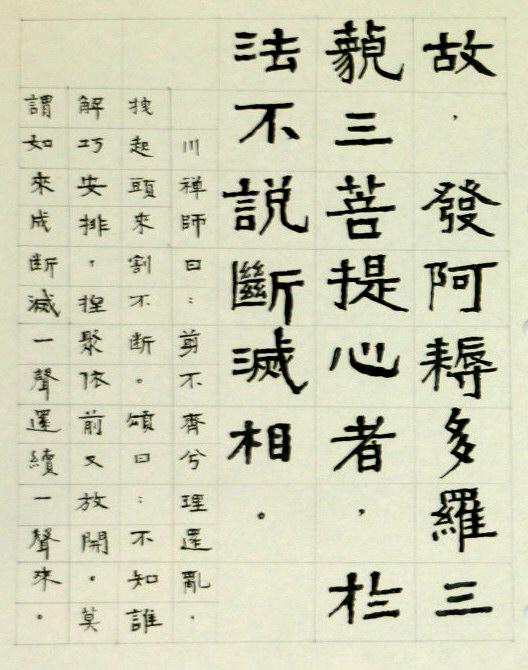 故，發阿耨多羅三
藐三菩提心者，於
法不說斷滅相。
川禪師曰：剪不齊兮理還亂，
拽起頭來割不断。頌曰：不知誰
解巧安排，捏聚依前又放開。莫
謂如來成断滅一聲還續一聲來。